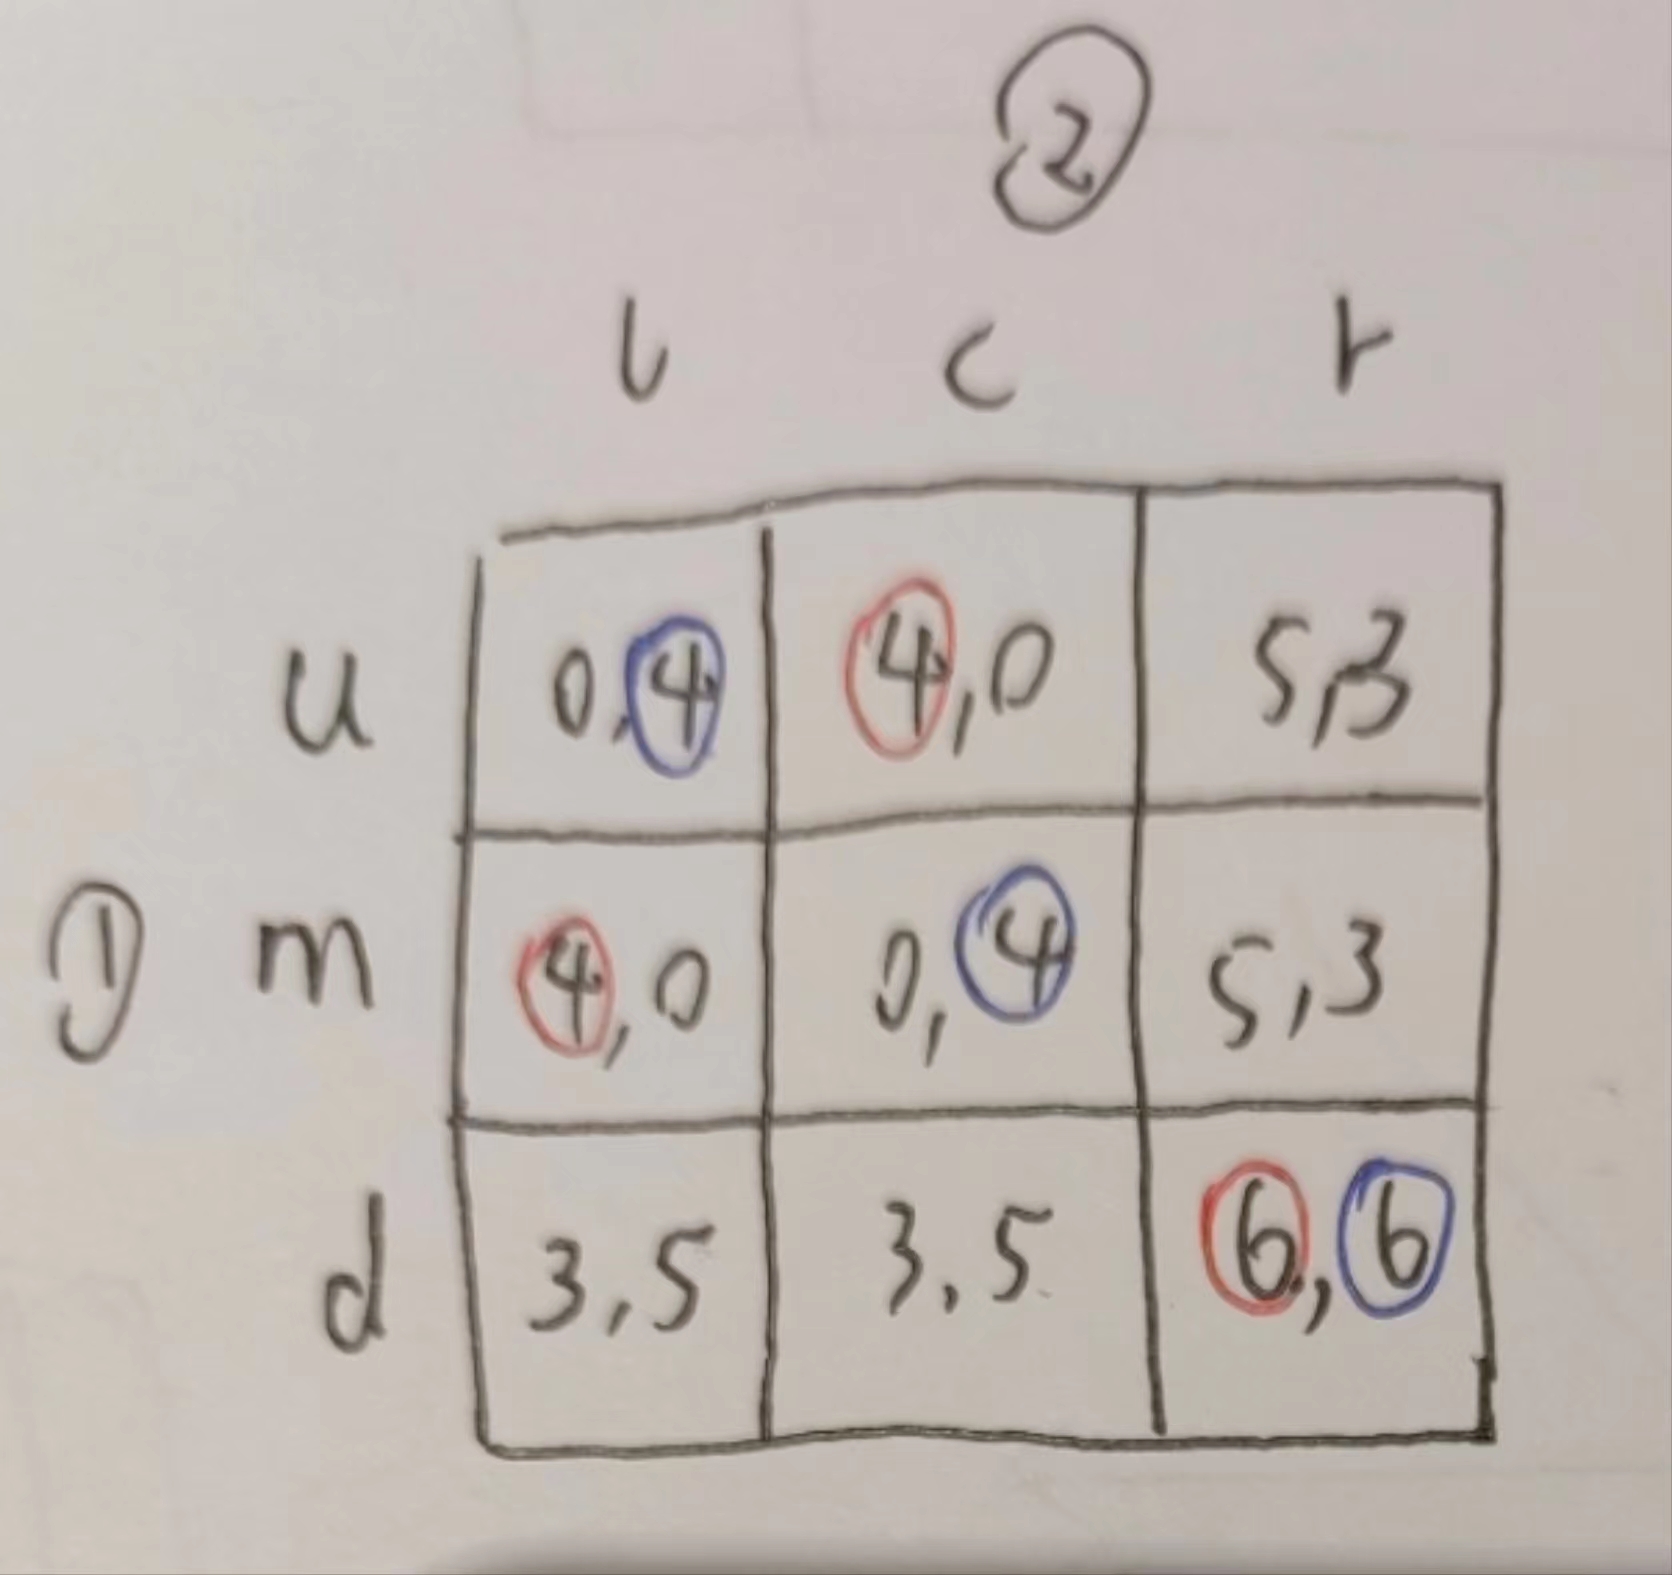 ②
l c r
u 0,4 4,0 5,3
① m 4,0 0,4 5,3
d 3,5 3,5 6,6